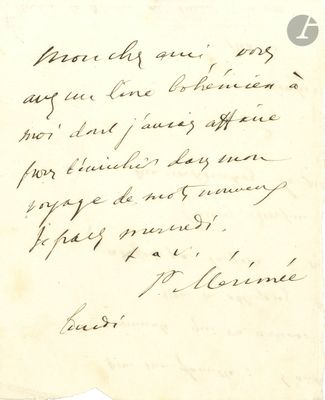 Mon cher ami, vous
avez un livre bohémien à
moi dont j'aurais affaire
pour l'enrichir dans mon
voyage de mots nouveaux
Je pars mercredi.
t. a. v.
Pr Mérimée
Lundi